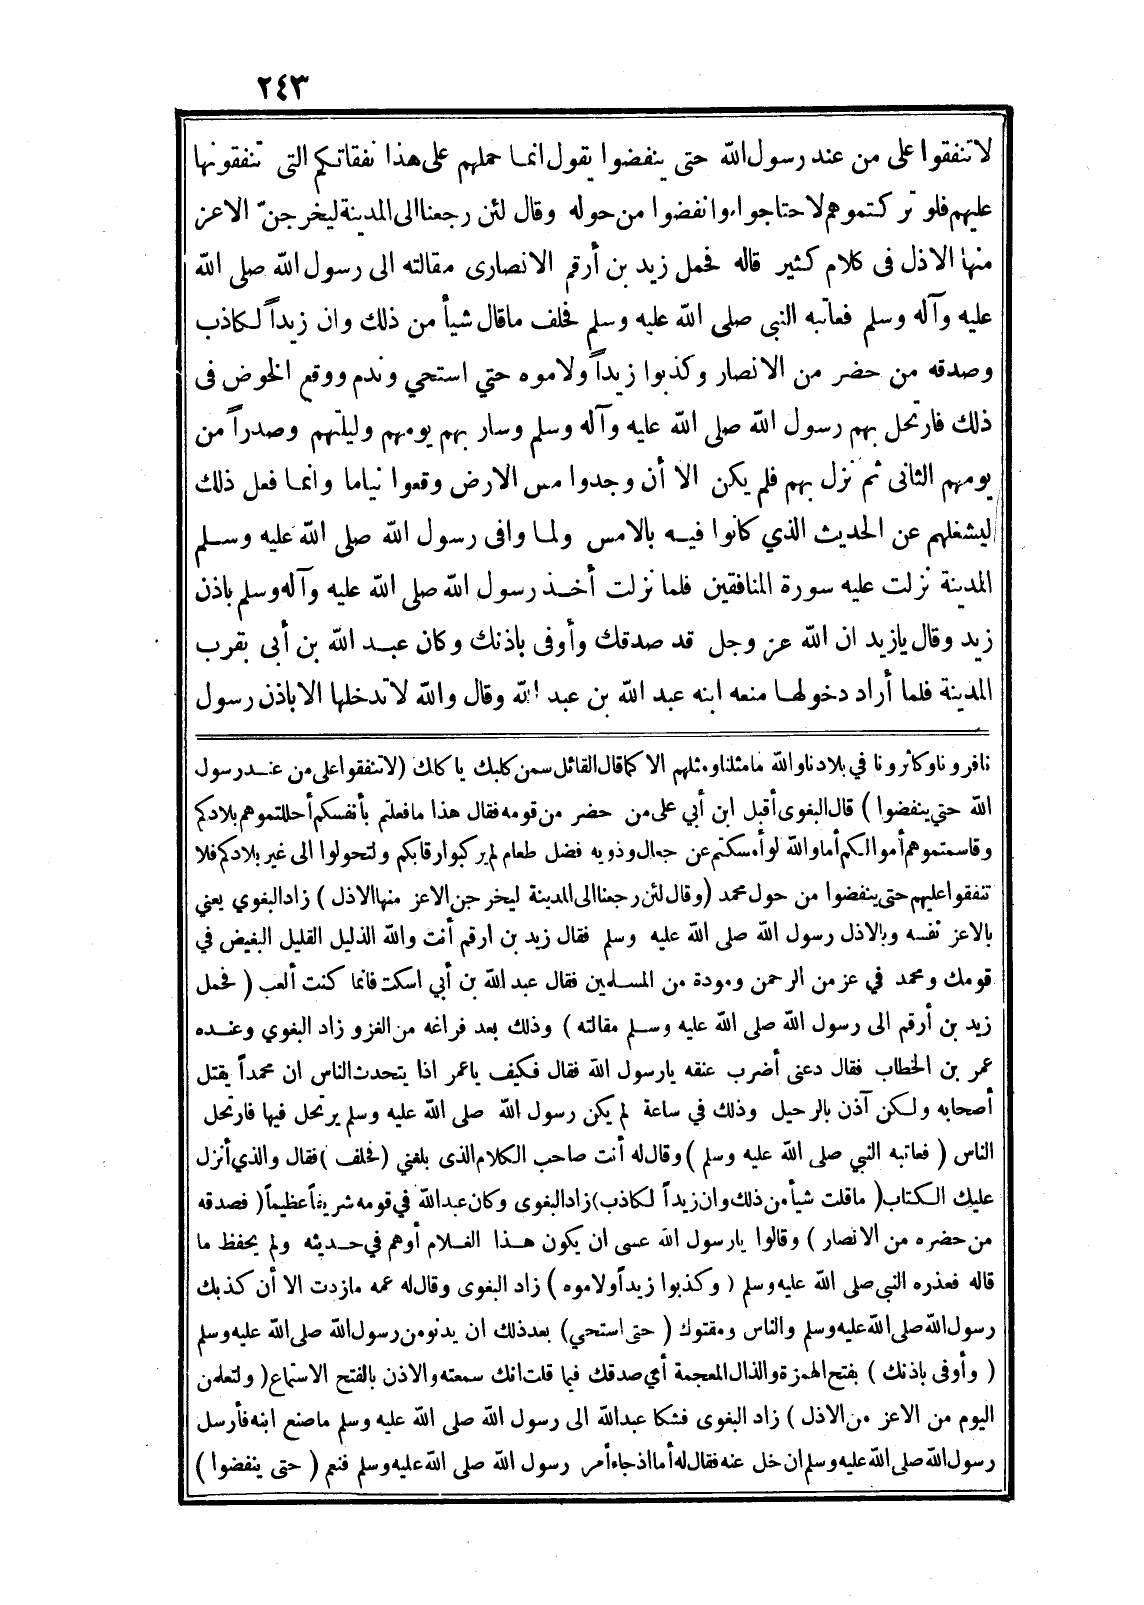 ٢٤٣
لا تنفقوا على من عند رسول الله حتى ينفضوا يقول انما حملهم على هذا نفقاتكم التى تنفقونها
عليهم فلو تركتموهم لاحتاجوا وانفضوا من حوله وقال لئن رجعنا الى المدينة ليخرجنّ الاعز
منها الاذل فى كلام كثير قاله فحمل زيد بن أرقم الانصارى مقالته الى رسول الله صلى الله
عليه وآله وسلم فعاتبه النبي صلى الله عليه وسلم فحلف ماقال شيأ من ذلك وان زيداً لكاذب
وصدقه من حضر من الانصار وكذبوا زيداً ولاموه حتي استحي وندم ووقع الخوض فى
ذلك فارتحل بهم رسول الله صلى الله عليه وآله وسلم وسار بهم يومهم وليلتهم وصدراً من
يومهم الثانى ثم نزل بهم فلم يكن الا أن وجدوا مس الارض وقعوا نياما وانما فعل ذلك
ليشغلهم عن الحديث الذي كانوا فيه بالامس ولما وافى رسول الله صلى الله عليه وسلم
المدينة نزلت عليه سورة المنافقين فلما نزلت أخذ رسول الله صلى الله عليه وآله وسلم باذن
زيد وقال يازيد ان الله عز وجل قد صدقك وأوفى باذنك وكان عبد الله بن أبى بقرب
المدينة فلما أراد دخولها منعه ابنه عبد الله بن عبد الله وقال والله لا تدخلها الا باذن رسول
نافرونا وكاثرونا في بلادنا والله مامثلنا ومثلهم الا كما قال القائل سمن كلبك يا كلك (لا تنفقوا على من عند رسول
الله حتي ينفضوا) قال البغوى أقبل ابن أبي على من حضر من قومه فقال هذا مافعلتم بأنفسكم أحللتموهم بلادكم
وقاسمتموهم أموالكم أما والله لو أمسكتم عن جعال وذويه فضل طعام لم يركبوا رقابكم ولتحولوا الى غير بلادكم فلا
تنفقوا عليهم حتى ينفضوا من حول محمد (وقال لئن رجعنا الى المدينة ليخرجن الاعز منها الاذل) زاد البغوي يعني
بالاعز نفسه وبالاذل رسول الله صلى الله عليه وسلم فقال زيد بن ارقم أنت والله الذليل القليل البغيض في
قومك ومحمد في عز من الرحمن ومودة من المسلمين فقال عبد الله بن أبي اسكت فانما كنت ألعب (فحمل
زيد بن أرقم الى رسول الله صلى الله عليه وسلم مقالته) وذلك بعد فراغه من الغزو زاد البغوي وعنده
عمر بن الخطاب فقال دعنى أضرب عنقه يارسول الله فقال فكيف ياعمر اذا يتحدث الناس ان محمداً يقتل
أصحابه ولكن آذن بالرحيل وذلك في ساعة لم يكن رسول الله صلى الله عليه وسلم يرتحل فيها فارتحل
الناس (فعاتبه النبي صلى الله عليه وسلم) وقال له أنت صاحب الكلام الذى بلغني (فحلف) فقال والذي أنزل
عليك الكتاب (ماقلت شيأ من ذلك وان زيداً لكاذب) زاد البغوى وكان عبد الله في قومه شريفاً عظيماً (فصدقه
من حضره من الانصار) وقالوا يارسول الله عسى ان يكون هذا الغلام أوهم في حديثه ولم يحفظ ما
قاله فعذره النبي صلى الله عليه وسلم (وكذبوا زيداً ولاموه) زاد البغوى وقال له عمه مازدت الا أن كذبك
رسول الله صلى الله عليه وسلم والناس ومقتوك (حتى استحي) بعد ذلك ان يدنو من رسول الله صلى الله عليه وسلم
(وأوفى باذنك) بفتح الهمزة والذال المعجمة أي صدقك فيما قلت انك سمعته والاذن بالفتح الاستماع (ولتعلمن
اليوم من الاعز من الاذل) زاد البغوى فشكا عبد الله الى رسول الله صلى الله عليه وسلم ماصنع ابنه فأرسل
رسول الله صلى الله عليه وسلم ان خل عنه فقال له أما اذ جاء أمر رسول الله صلى الله عليه وسلم فنعم (حتى ينفضوا)